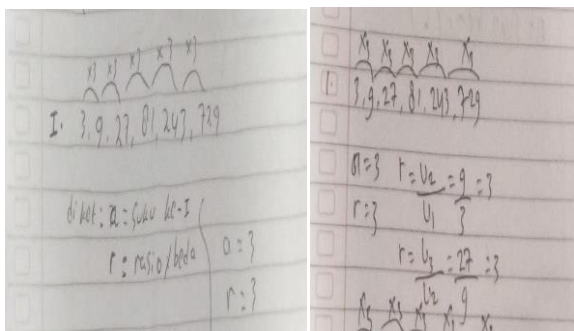 x3 x3 x3 x3 x3
I. 3, 9, 27, 81, 243, 729
diket: a = suku ke-I
r = rasio/beda
a = 3
r = 3
x3 x3 x3 x3 x3
1. 3, 9, 27, 81, 243, 729
a = 3 r = U2 = 9 = 3
r = 3 U1 3
r = U3 = 27 = 3
U2 9
x3 x3 x3 x3 x3